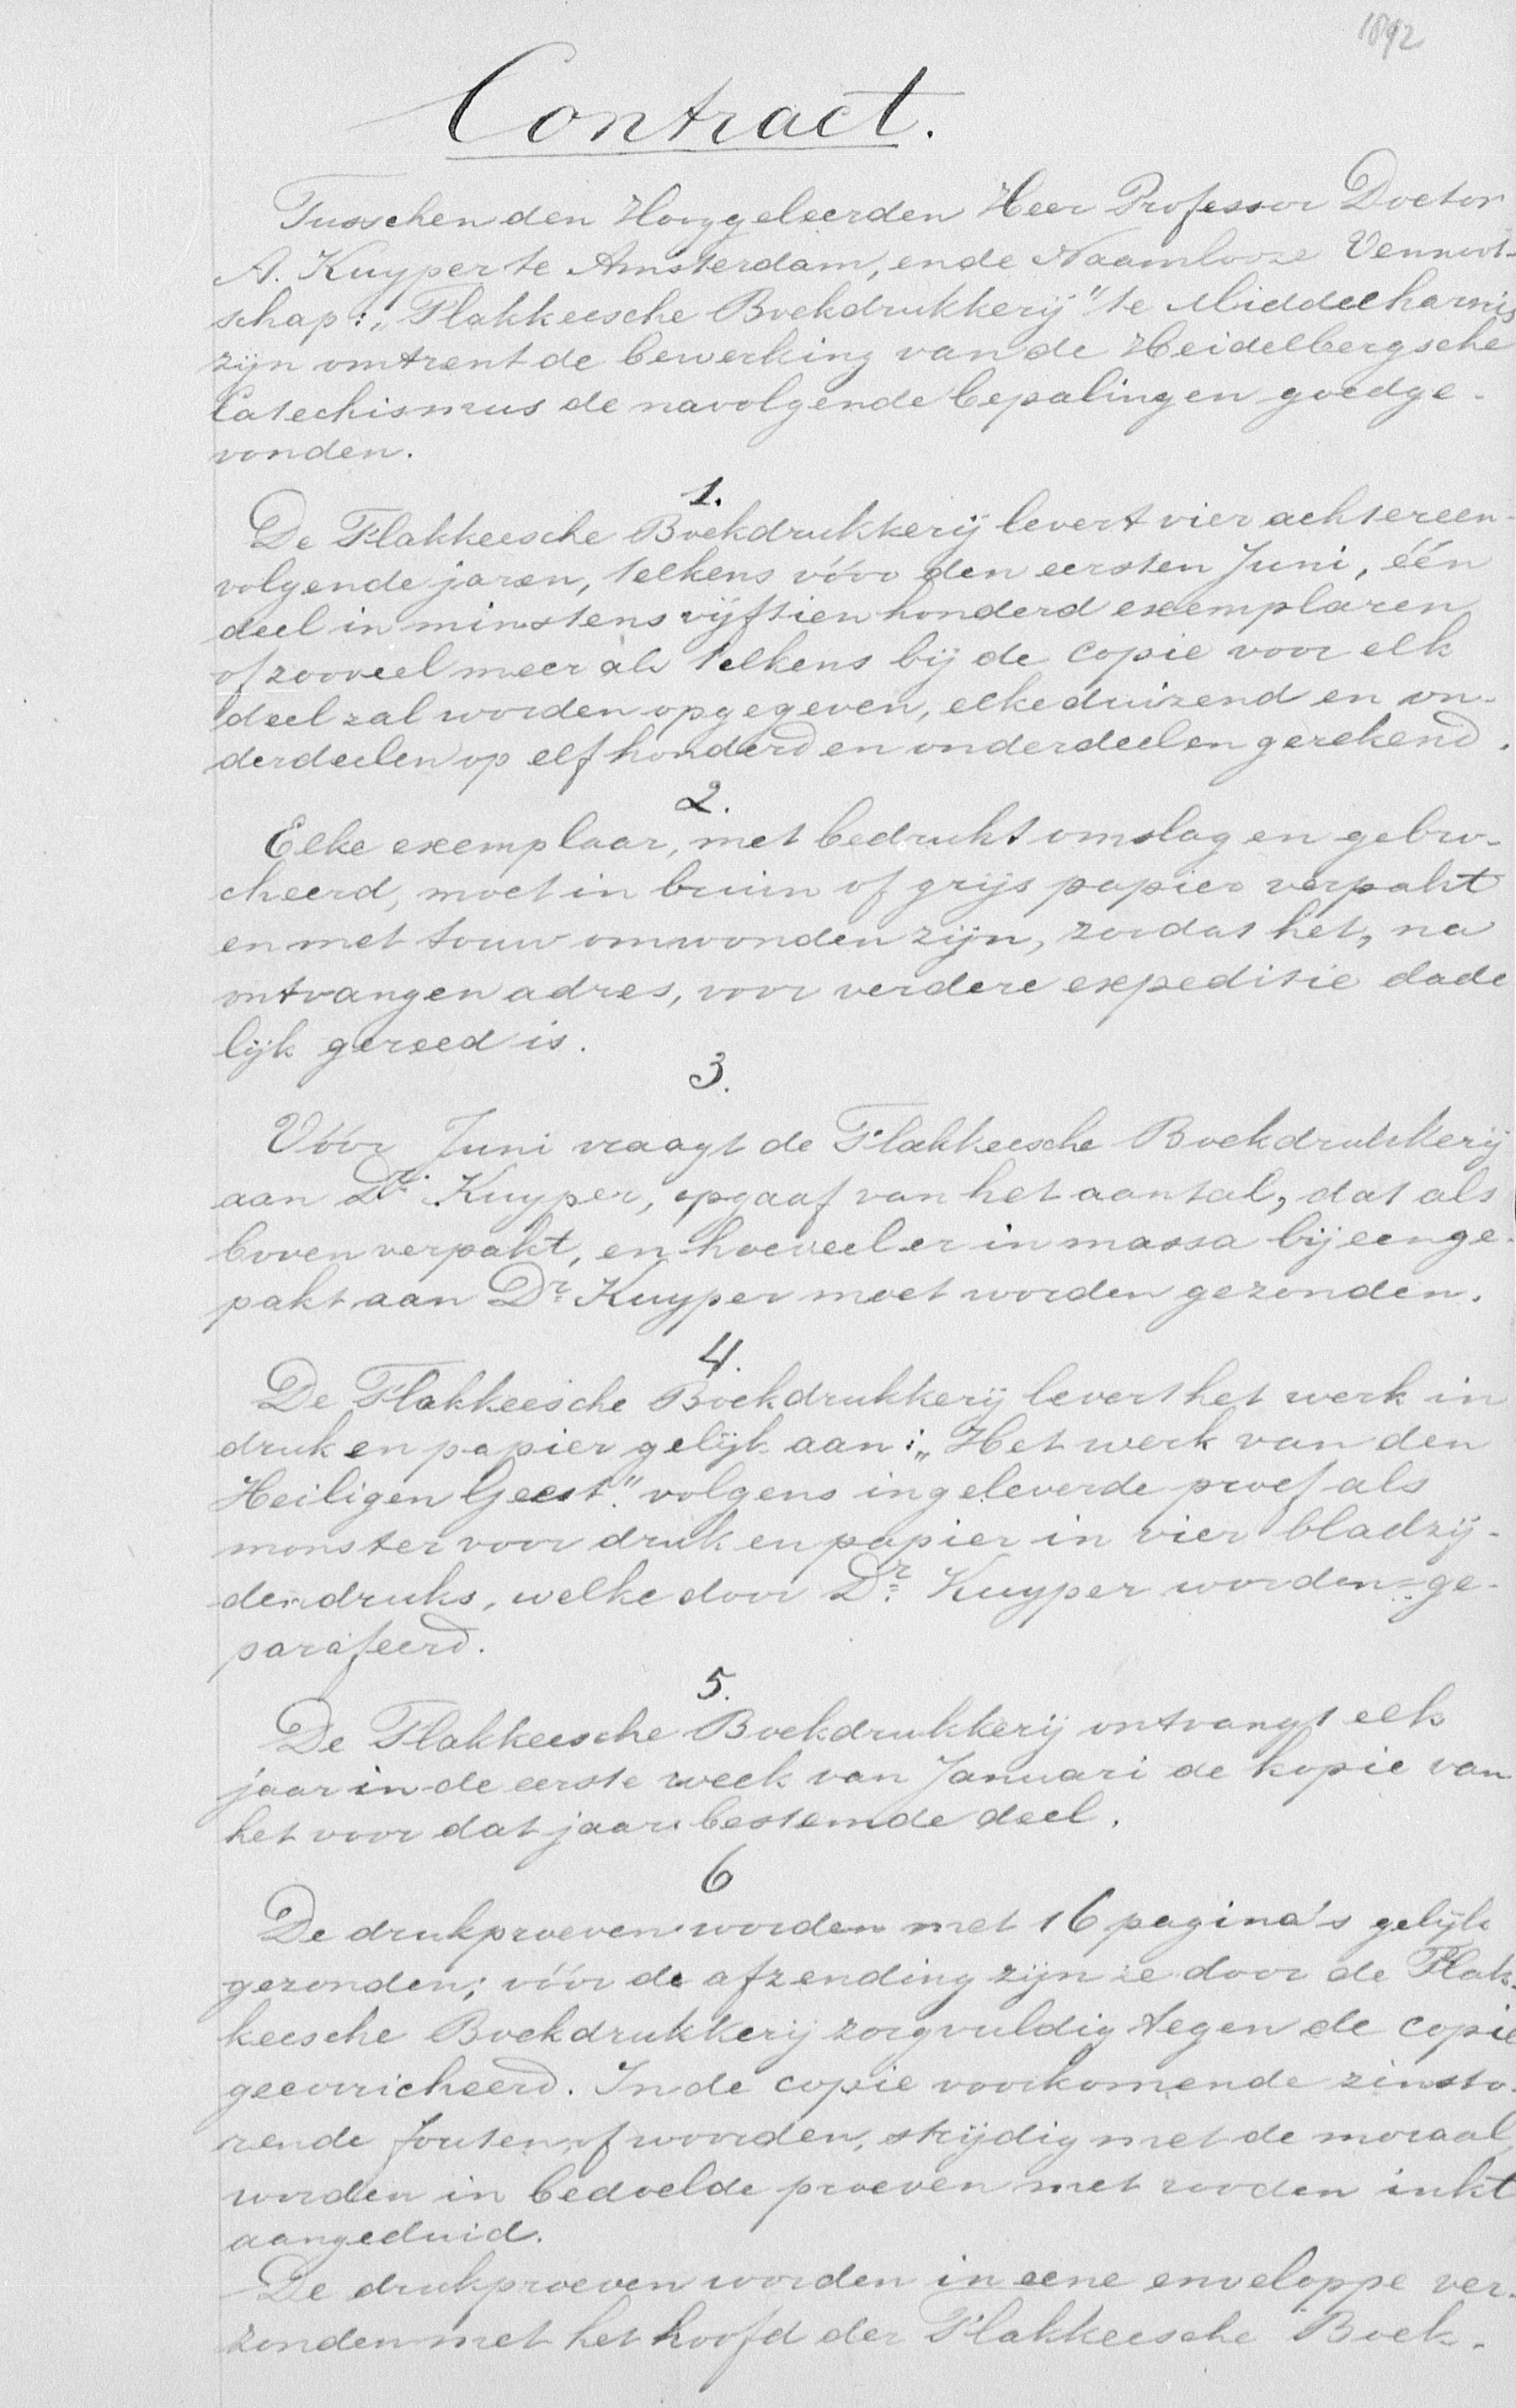 1892
Contract.
Tusschen den Hooggeleerden Heer Professor Doctor
A. Kuyper te Amsterdam, en de Naamlooze Vennoot-
schap: „Flakkeesche Boekdrukkerij" te Middelharnis
zijn omtrent de bewerking van de Heidelbergsche
Catechismus de navolgende bepalingen goedge-
vonden.
1.
De Flakkeesche Boekdrukkerij levert vier achtereen-
volgende jaren, telkens vóór den eersten Juni, één
deel in minstens vijftien honderd exemplaren
of zooveel meer als telkens bij de copie voor elk
deel zal worden opgegeven, elke duizend en on-
derdeelen op elf honderd en onderdeelen gerekend.
2.
Elke exemplaar, met bedrukt omslag en gebro-
cheerd, moet in bruin of grijs papier verpakt
en met touw omwonden zijn, zoodat het, na
ontvangen adres, voor verdere expeditie dade
lijk gereed is.
3.
Vóór Juni vraagt de Flakkeesche Boekdrukkerij
aan Dr. Kuyper, opgaaf van het aantal, dat als
boven verpakt, en hoeveel er in massa bijeenge-
pakt aan Dr. Kuyper moet worden gezonden.
4.
De Flakkeesche Boekdrukkerij levert het werk in
druk en papier gelijk aan: „Het werk van den
Heiligen Geest." volgens ingeleverde proef als
monster voor druk en papier in vier bladzij-
den druks, welke door Dr. Kuyper worden ge-
parafeerd.
5.
De Flakkeesche Boekdrukkerij ontvangt elk
jaar in de eerste week van Januari de kopie van
het voor dat jaar bestemde deel.
6
De drukproeven worden met 16 pagina's gelijk
gezonden; vóór de afzending zijn ze door de Flak-
keesche Boekdrukkerij zorgvuldig tegen de copie
gecorricheerd. In de copie voorkomende zinsto-
rende fouten of woorden, strijdig met de moraal,
worden in bedoelde proeven met rooden inkt
aangeduid.
De drukproeven worden in eene enveloppe ver-
zonden met het hoofd der Flakkeesche Boek-